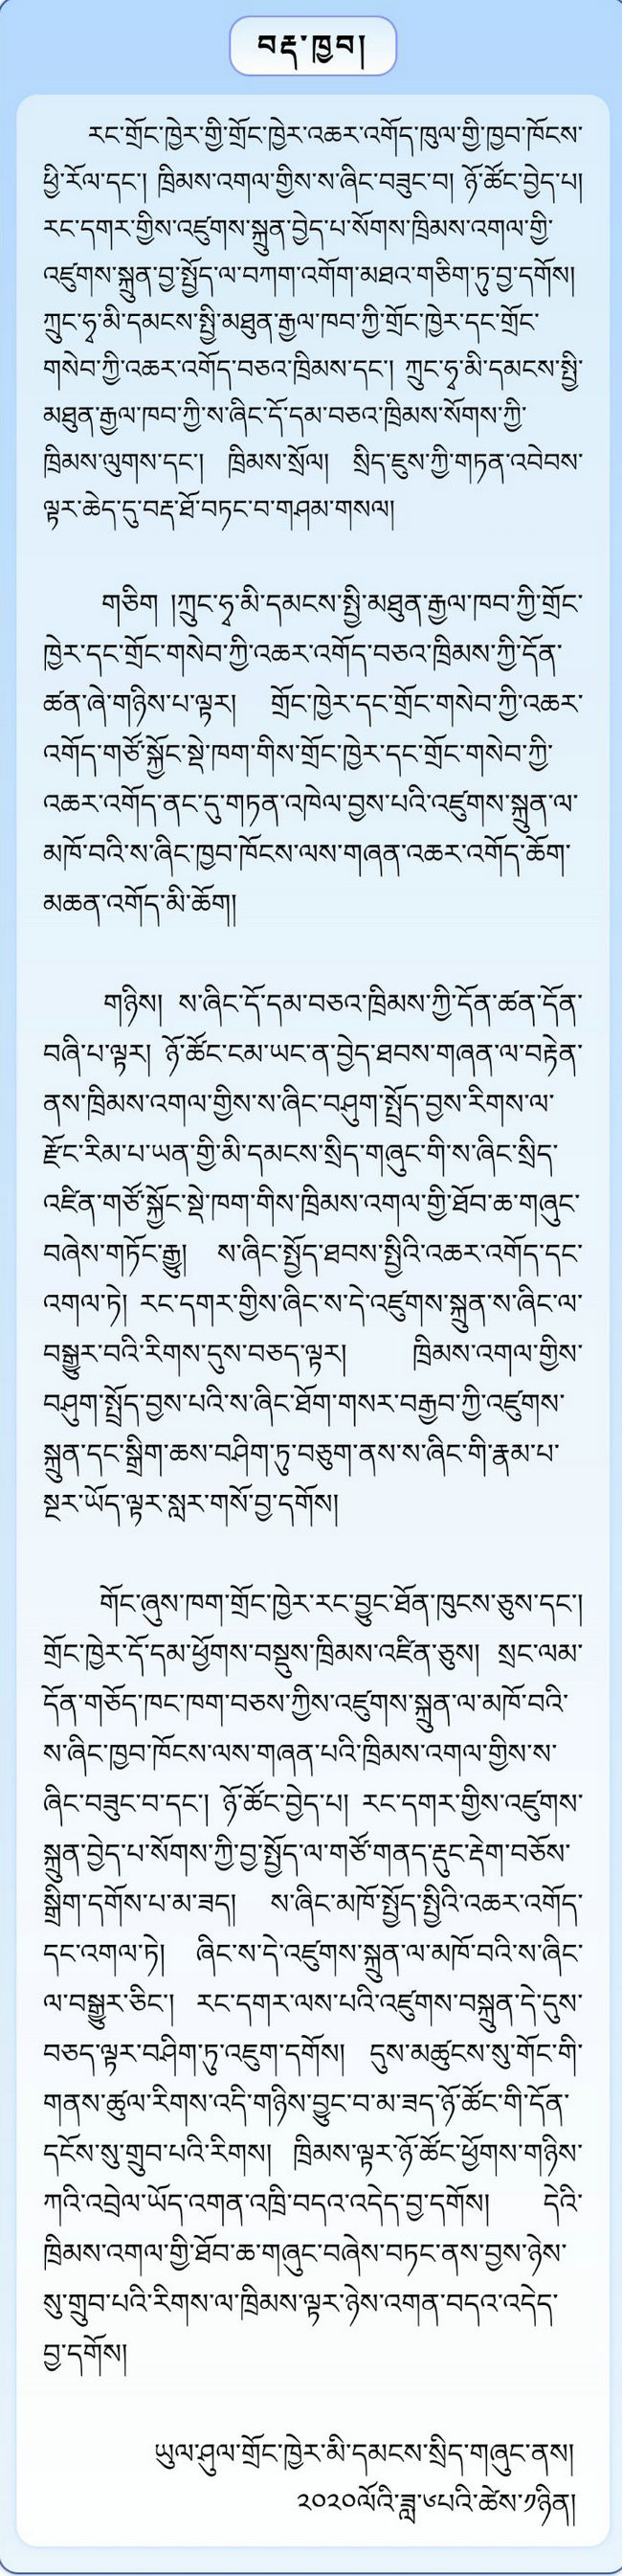 བརྡ་ཁྱབ།
རང་གྲོང་ཁྱེར་གྱི་གྲོང་ཁྱེར་འཆར་འགོད་ཁུལ་གྱི་ཁྱབ་ཁོངས་
ཕྱི་རོལ་དང་། ཁྲིམས་འགལ་གྱིས་ས་ཞིང་བཟུང་བ། ཉོ་ཚོང་བྱེད་པ།
རང་དགར་གྱིས་འཛུགས་སྐྲུན་བྱེད་པ་སོགས་ཁྲིམས་འགལ་གྱི་
འཛུགས་སྐྲུན་བྱ་སྤྱོད་ལ་བཀག་འགོག་མཐའ་གཅིག་ཏུ་བྱ་དགོས།
ཀྲུང་ཧྭ་མི་དམངས་སྤྱི་མཐུན་རྒྱལ་ཁབ་ཀྱི་གྲོང་ཁྱེར་དང་གྲོང་
གསེབ་ཀྱི་འཆར་འགོད་བཅའ་ཁྲིམས་དང་། ཀྲུང་ཧྭ་མི་དམངས་སྤྱི་
མཐུན་རྒྱལ་ཁབ་ཀྱི་ས་ཞིང་དོ་དམ་བཅའ་ཁྲིམས་སོགས་ཀྱི་
ཁྲིམས་ལུགས་དང་། ཁྲིམས་སྲོལ། སྲིད་ཇུས་ཀྱི་གཏན་འབེབས་
ལྟར་ཆེད་དུ་བརྡ་ཐོ་བཏང་བ་གཤམ་གསལ།
གཅིག །ཀྲུང་ཧྭ་མི་དམངས་སྤྱི་མཐུན་རྒྱལ་ཁབ་ཀྱི་གྲོང་
ཁྱེར་དང་གྲོང་གསེབ་ཀྱི་འཆར་འགོད་བཅའ་ཁྲིམས་ཀྱི་དོན་
ཚན་ཞེ་གཉིས་པ་ལྟར། གྲོང་ཁྱེར་དང་གྲོང་གསེབ་ཀྱི་འཆར་
འགོད་གཙོ་སྐྱོང་སྡེ་ཁག་གིས་གྲོང་ཁྱེར་དང་གྲོང་གསེབ་ཀྱི་
འཆར་འགོད་ནང་དུ་གཏན་འཁེལ་བྱས་པའི་འཛུགས་སྐྲུན་ལ་
མཁོ་བའི་ས་ཞིང་ཁྱབ་ཁོངས་ལས་གཞན་འཆར་འགོད་ཆོག་
མཆན་འགོད་མི་ཆོག།
གཉིས། ས་ཞིང་དོ་དམ་བཅའ་ཁྲིམས་ཀྱི་དོན་ཚན་དོན་
བཞི་པ་ལྟར། ཉོ་ཚོང་ངམ་ཡང་ན་བྱེད་ཐབས་གཞན་ལ་བརྟེན་
ནས་ཁྲིམས་འགལ་གྱིས་ས་ཞིང་བཤུག་སྤྲོད་བྱས་རིགས་ལ་
རྫོང་རིམ་པ་ཡན་གྱི་མི་དམངས་སྲིད་གཞུང་གི་ས་ཞིང་སྲིད་
འཛིན་གཙོ་སྐྱོང་སྡེ་ཁག་གིས་ཁྲིམས་འགལ་གྱི་ཐོབ་ཆ་གཞུང་
བཞེས་གཏོང་རྒྱུ། ས་ཞིང་སྤྱོད་ཐབས་སྤྱིའི་འཆར་འགོད་དང་
འགལ་ཏེ། རང་དགར་གྱིས་ཞིང་ས་དེ་འཛུགས་སྐྲུན་ས་ཞིང་ལ་
བསྒྱུར་བའི་རིགས་དུས་བཅད་ལྟར། ཁྲིམས་འགལ་གྱིས་
བཤུག་སྤྲོད་བྱས་པའི་ས་ཞིང་ཐོག་གསར་བརྒྱབ་ཀྱི་འཛུགས་
སྐྲུན་དང་སྒྲིག་ཆས་བཤིག་ཏུ་བཅུག་ནས་ས་ཞིང་གི་རྣམ་པ་
སྔར་ཡོད་ལྟར་སླར་གསོ་བྱ་དགོས།
གོང་ཞུས་ཁག་གྲོང་ཁྱེར་རང་བྱུང་ཐོན་ཁུངས་ཅུས་དང་།
གྲོང་ཁྱེར་དོ་དམ་ཕྱོགས་བསྡུས་ཁྲིམས་འཛིན་ཅུས། སྲང་ལམ་
དོན་གཅོད་ཁང་ཁག་བཅས་ཀྱིས་འཛུགས་སྐྲུན་ལ་མཁོ་བའི་
ས་ཞིང་ཁྱབ་ཁོངས་ལས་གཞན་པའི་ཁྲིམས་འགལ་གྱིས་ས་
ཞིང་བཟུང་བ་དང་། ཉོ་ཚོང་བྱེད་པ། རང་དགར་གྱིས་འཛུགས་
སྐྲུན་བྱེད་པ་སོགས་ཀྱི་བྱ་སྤྱོད་ལ་གཙོ་གནད་རྡུང་རྡེག་བཅོས་
སྒྲིག་དགོས་པ་མ་ཟད། ས་ཞིང་མཁོ་སྤྱོད་སྤྱིའི་འཆར་འགོད་
དང་འགལ་ཏེ། ཞིང་ས་དེ་འཛུགས་སྐྲུན་ལ་མཁོ་བའི་ས་ཞིང་
ལ་བསྒྱུར་ཅིང་། རང་དགར་ལས་པའི་འཛུགས་བསྐྲུན་དེ་དུས་
བཅད་ལྟར་བཤིག་ཏུ་འཇུག་དགོས། དུས་མཚུངས་སུ་གོང་གི་
གནས་ཚུལ་རིགས་འདི་གཉིས་བྱུང་བ་མ་ཟད་ཉོ་ཚོང་གི་དོན་
དངོས་སུ་གྲུབ་པའི་རིགས། ཁྲིམས་ལྟར་ཉོ་ཚོང་ཕྱོགས་གཉིས་
ཀའི་འབྲེལ་ཡོད་འགན་འཁྲི་བདའ་འདེད་བྱ་དགོས། དེའི་
ཁྲིམས་འགལ་གྱི་ཐོབ་ཆ་གཞུང་བཞེས་བཏང་ནས་བྱས་ཉེས་
སུ་གྲུབ་པའི་རིགས་ལ་ཁྲིམས་ལྟར་ཉེས་འགན་བདའ་འདེད་
བྱ་དགོས།
ཡུལ་ཤུལ་གྲོང་ཁྱེར་མི་དམངས་སྲིད་གཞུང་ནས།
༢༠༢༠ལོའི་ཟླ་༦པའི་ཚེས་༡ཉིན།